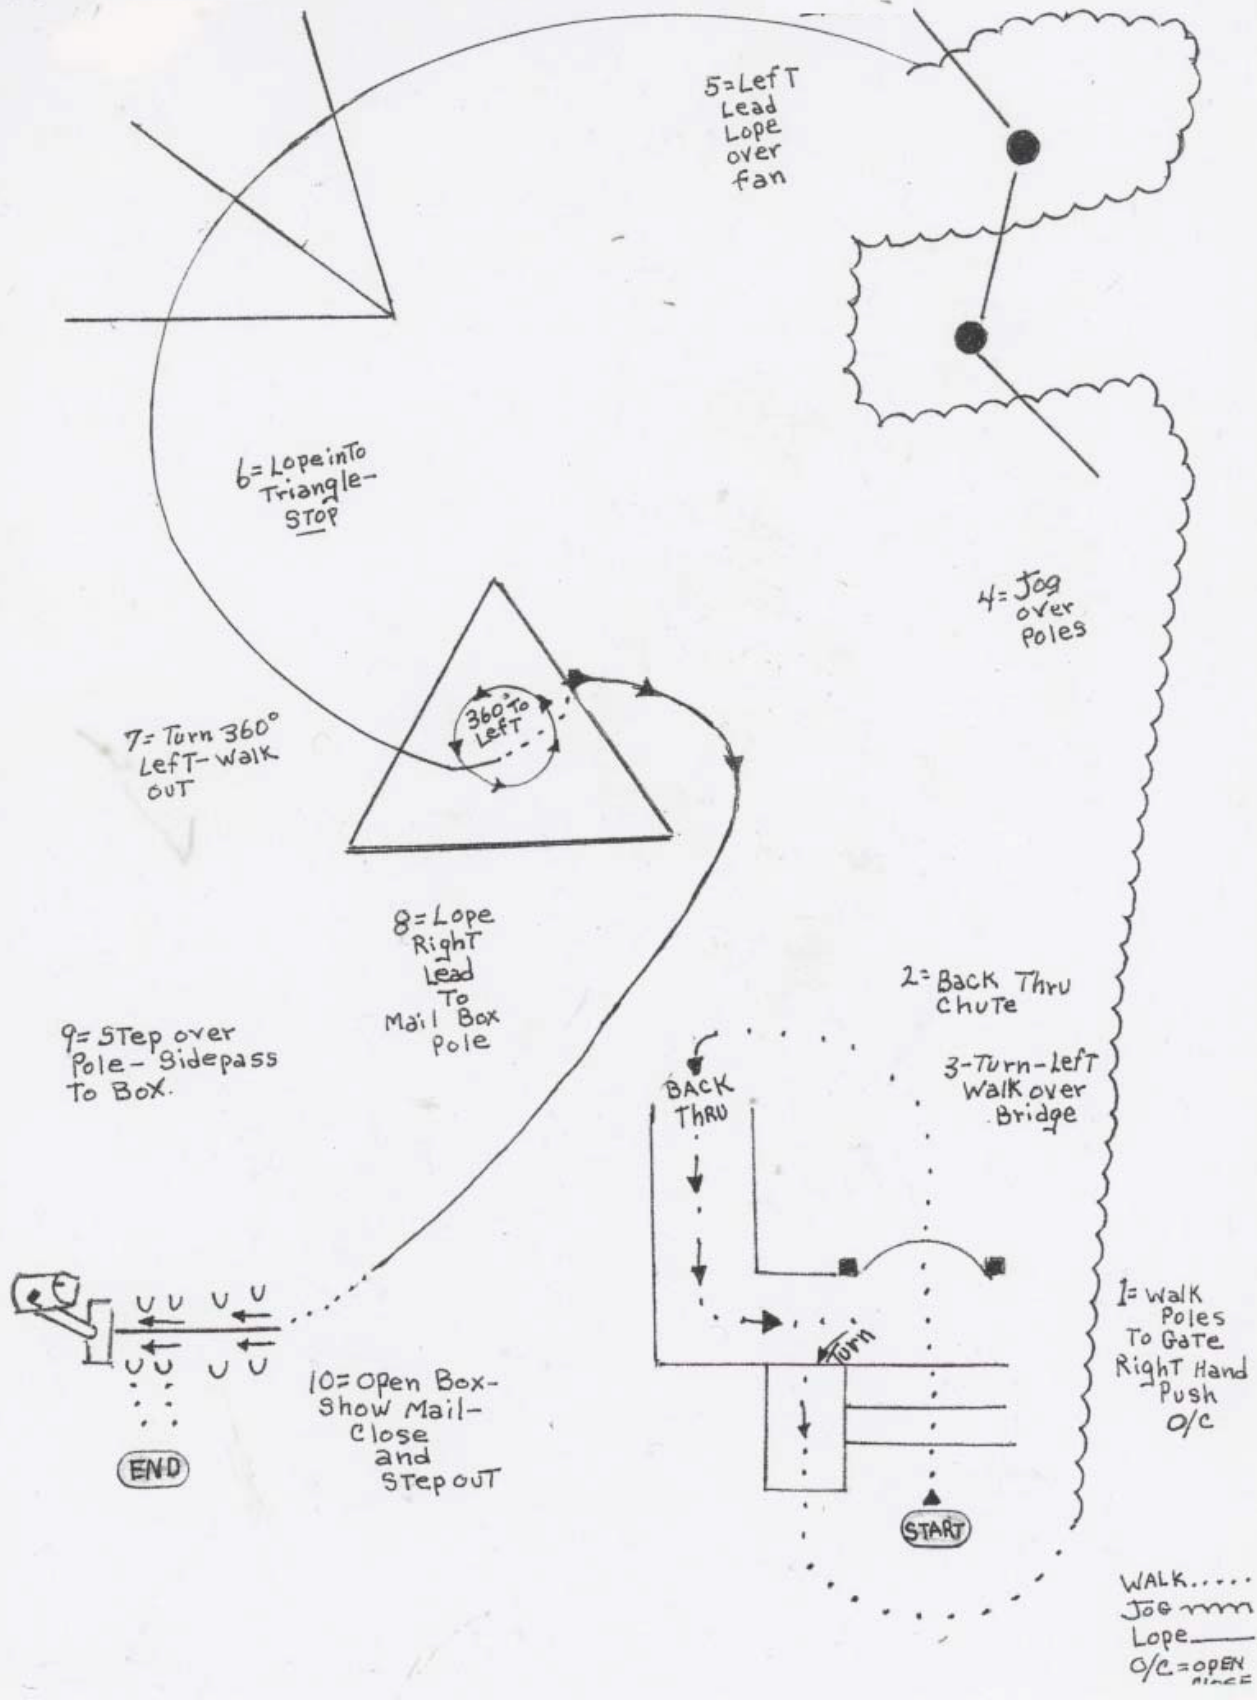 5=Left
Lead
Lope
over
fan
6=Lope into
Triangle-
STOP
4=Jog
over
Poles
360° To
Left
7=Turn 360°
Left-Walk
out
8=Lope
Right
Lead
To
Mail Box
Pole
2=Back Thru
Chute
9=Step over
Pole-Sidepass
To Box.
3-Turn-Left
Walk over
Bridge
BACK
Thru
1=Walk
Poles
To Gate
Right Hand
Push
O/C
Turn
10=Open Box-
Show Mail-
Close
and
Step out
END
START
WALK.....
JOG
Lope
O/C=OPEN
CLOSE